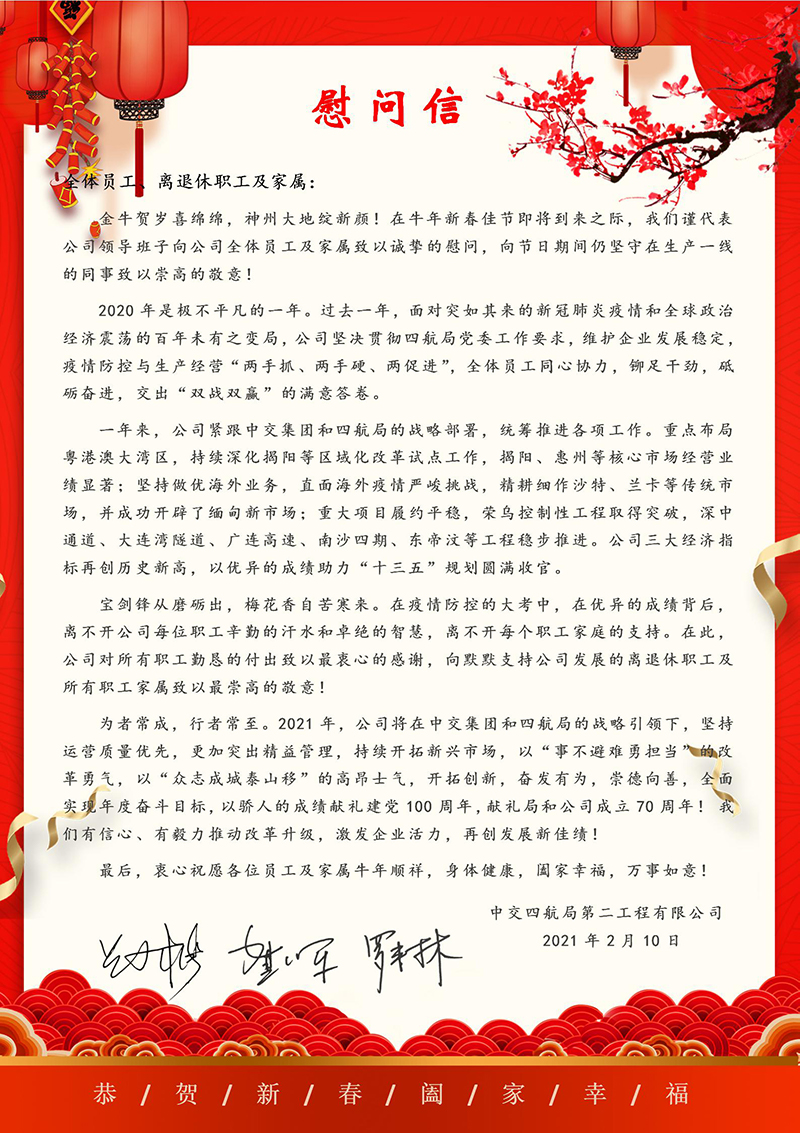 慰问信
全体员工、离退休职工及家属：
金牛贺岁喜绵绵，神州大地绽新颜！在牛年新春佳节即将到来之际，我们谨代表
公司领导班子向公司全体员工及家属致以诚挚的慰问，向节日期间仍坚守在生产一线
的同事致以崇高的敬意！
2020年是极不平凡的一年。过去一年，面对突如其来的新冠肺炎疫情和全球政治
经济震荡的百年未有之变局，公司坚决贯彻四航局党委工作要求，维护企业发展稳定，
疫情防控与生产经营“两手抓、两手硬、两促进”，全体员工同心协力，铆足干劲，砥
砺奋进，交出“双战双赢”的满意答卷。
一年来，公司紧跟中交集团和四航局的战略部署，统筹推进各项工作。重点布局
粤港澳大湾区，持续深化揭阳等区域化改革试点工作，揭阳、惠州等核心市场经营业
绩显著；坚持做优海外业务，直面海外疫情严峻挑战，精耕细作沙特、兰卡等传统市
场，并成功开辟了缅甸新市场；重大项目履约平稳，荣乌控制性工程取得突破，深中
通道、大连湾隧道、广连高速、南沙四期、东帝汶等工程稳步推进。公司三大经济指
标再创历史新高，以优异的成绩助力“十三五”规划圆满收官。
宝剑锋从磨砺出，梅花香自苦寒来。在疫情防控的大考中，在优异的成绩背后，
离不开公司每位职工辛勤的汗水和卓绝的智慧，离不开每个职工家庭的支持。在此，
公司对所有职工勤恳的付出致以最衷心的感谢，向默默支持公司发展的离退休职工及
所有职工家属致以最崇高的敬意！
为者常成，行者常至。2021年，公司将在中交集团和四航局的战略引领下，坚持
运营质量优先，更加突出精益管理，持续开拓新兴市场，以“事不避难勇担当”的改
革勇气，以“众志成城泰山移”的高昂士气，开拓创新，奋发有为，崇德向善，全面
实现年度奋斗目标，以骄人的成绩献礼建党100周年，献礼局和公司成立70周年！我
们有信心、有毅力推动改革升级，激发企业活力，再创发展新佳绩！
最后，衷心祝愿各位员工及家属牛年顺祥，身体健康，阖家幸福，万事如意！
中交四航局第二工程有限公司
2021年2月10日
恭/贺/新/春/阖/家/幸/福